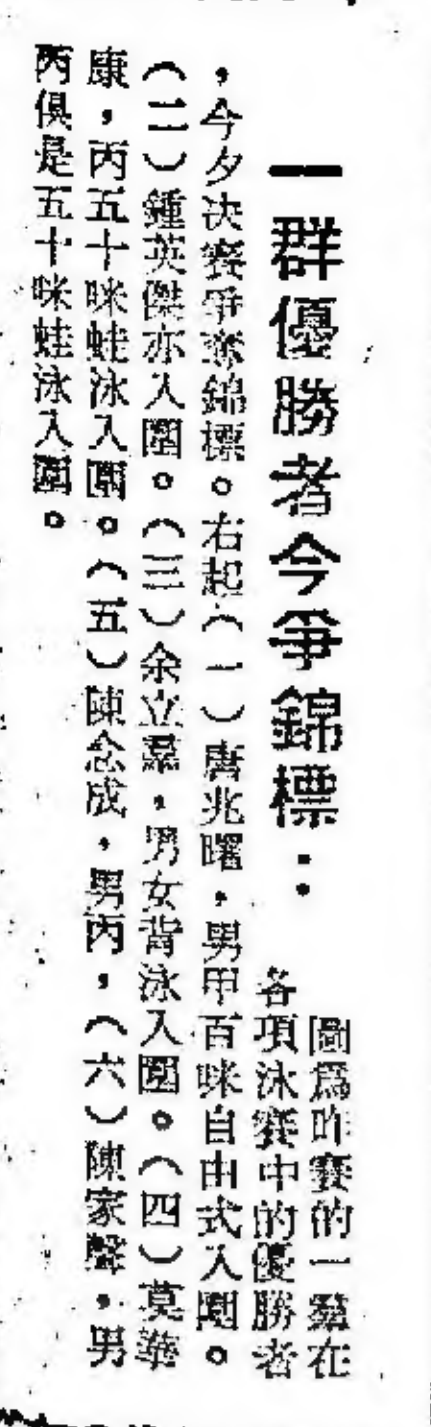 一群優勝者今爭錦標：
圖爲昨賽的一羣在
各項泳賽中的優勝者
，今夕决賽爭奪錦標。右起（一）唐兆曙，男甲百咪自由式入圍。
（二）鍾英傑亦入圍。（三）余立羣，男女背泳入圍。（四）莫華
康，丙五十咪蛙泳入圍。（五）陳念成，男丙，（六）陳家聲，男
丙俱是五十咪蛙泳入圍。